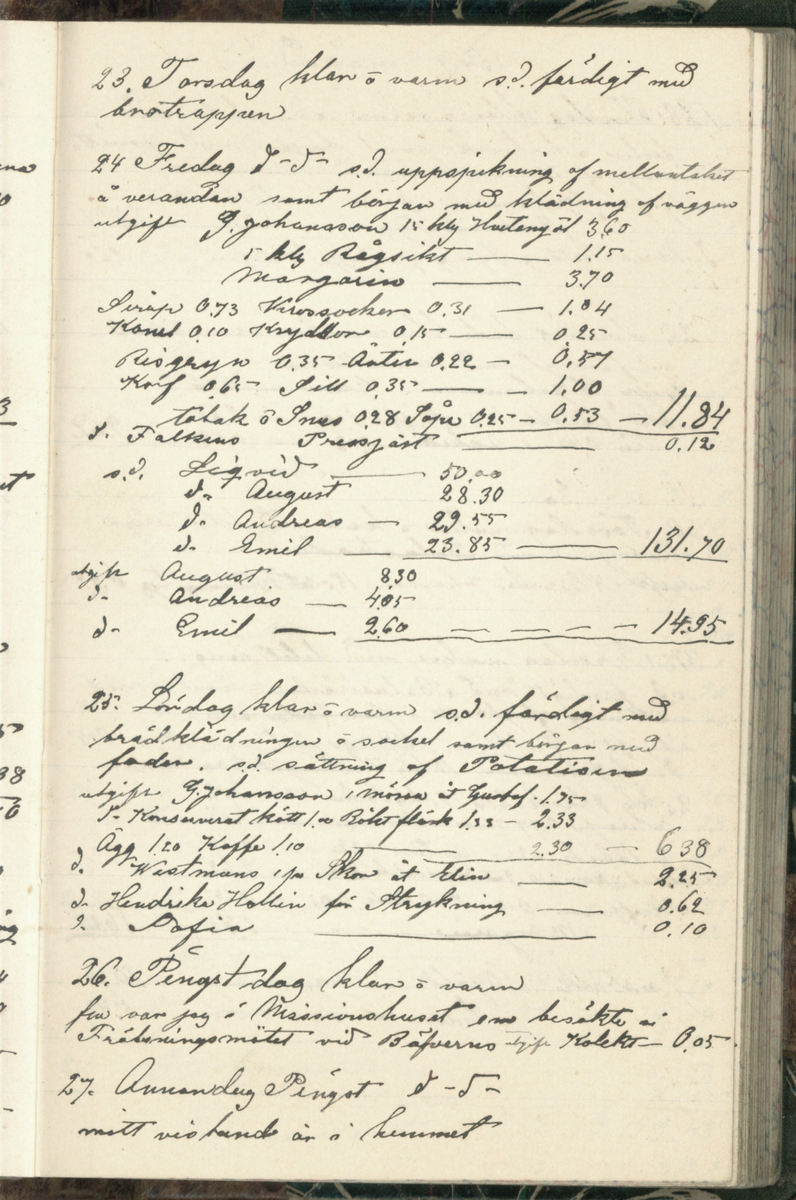 23. Torsdag klar o varm s.d. färdigt med
brotrappen
24 Fredag d-o- s.d. uppspikning af mellantaket
å verandan samt börjar med klädning af väggen
utgift G. Johansson 15 klg Hvetemjöl 3.60
5 klg Rågsikt — 1.15
Margarin — 3.70
Sirap 0.73 Krossocker 0.31 — 1.04
Kanel 0.10 Kryddor 0.15 — 0.25
Risgryn 0.35 Ärter 0.22 — 0.57
Korf 0.65 Sill 0.35 — 1.00
tobak o Snus 0.28 Såpa 0.25 — 0.53 — 11.84
d. Falkens Pressjäst — 0.12
s.d. Liqvid — 50.00
d. August 28.30
d. Andreas — 29.55
d. Emil — 23.85 — 131.70
utgift August 8.30
d- Andreas — 4.05
d- Emil — 2.60 — — — 14.95
25. Lördag klar o varm s.d. färdigt med
brädklädningen o sockel samt börjar med
foder. s.d. sättning af Potatisen
utgift G. Johansson 1 mössa åt Gustaf. 1.75
d- Konserverat kött 1.00 Rökt fläsk 1.33 — 2.33
Ägg 1.20 Kaffe 1.10 — 2.30 — 6 38
d. Westmans 1 pr Skor åt Elin — 2.25
d. Hendrika Hollin för Strykning — 0.62
d. Sofia — 0.10
26. Pingstdag klar o varm
fm var jag i Missionshuset em besökte vi
Frälsningsmötet vid Bäfverns utgift Kolekt — 0.05.
27. Annandag Pingst d-o-
mitt vistande är i hemmet